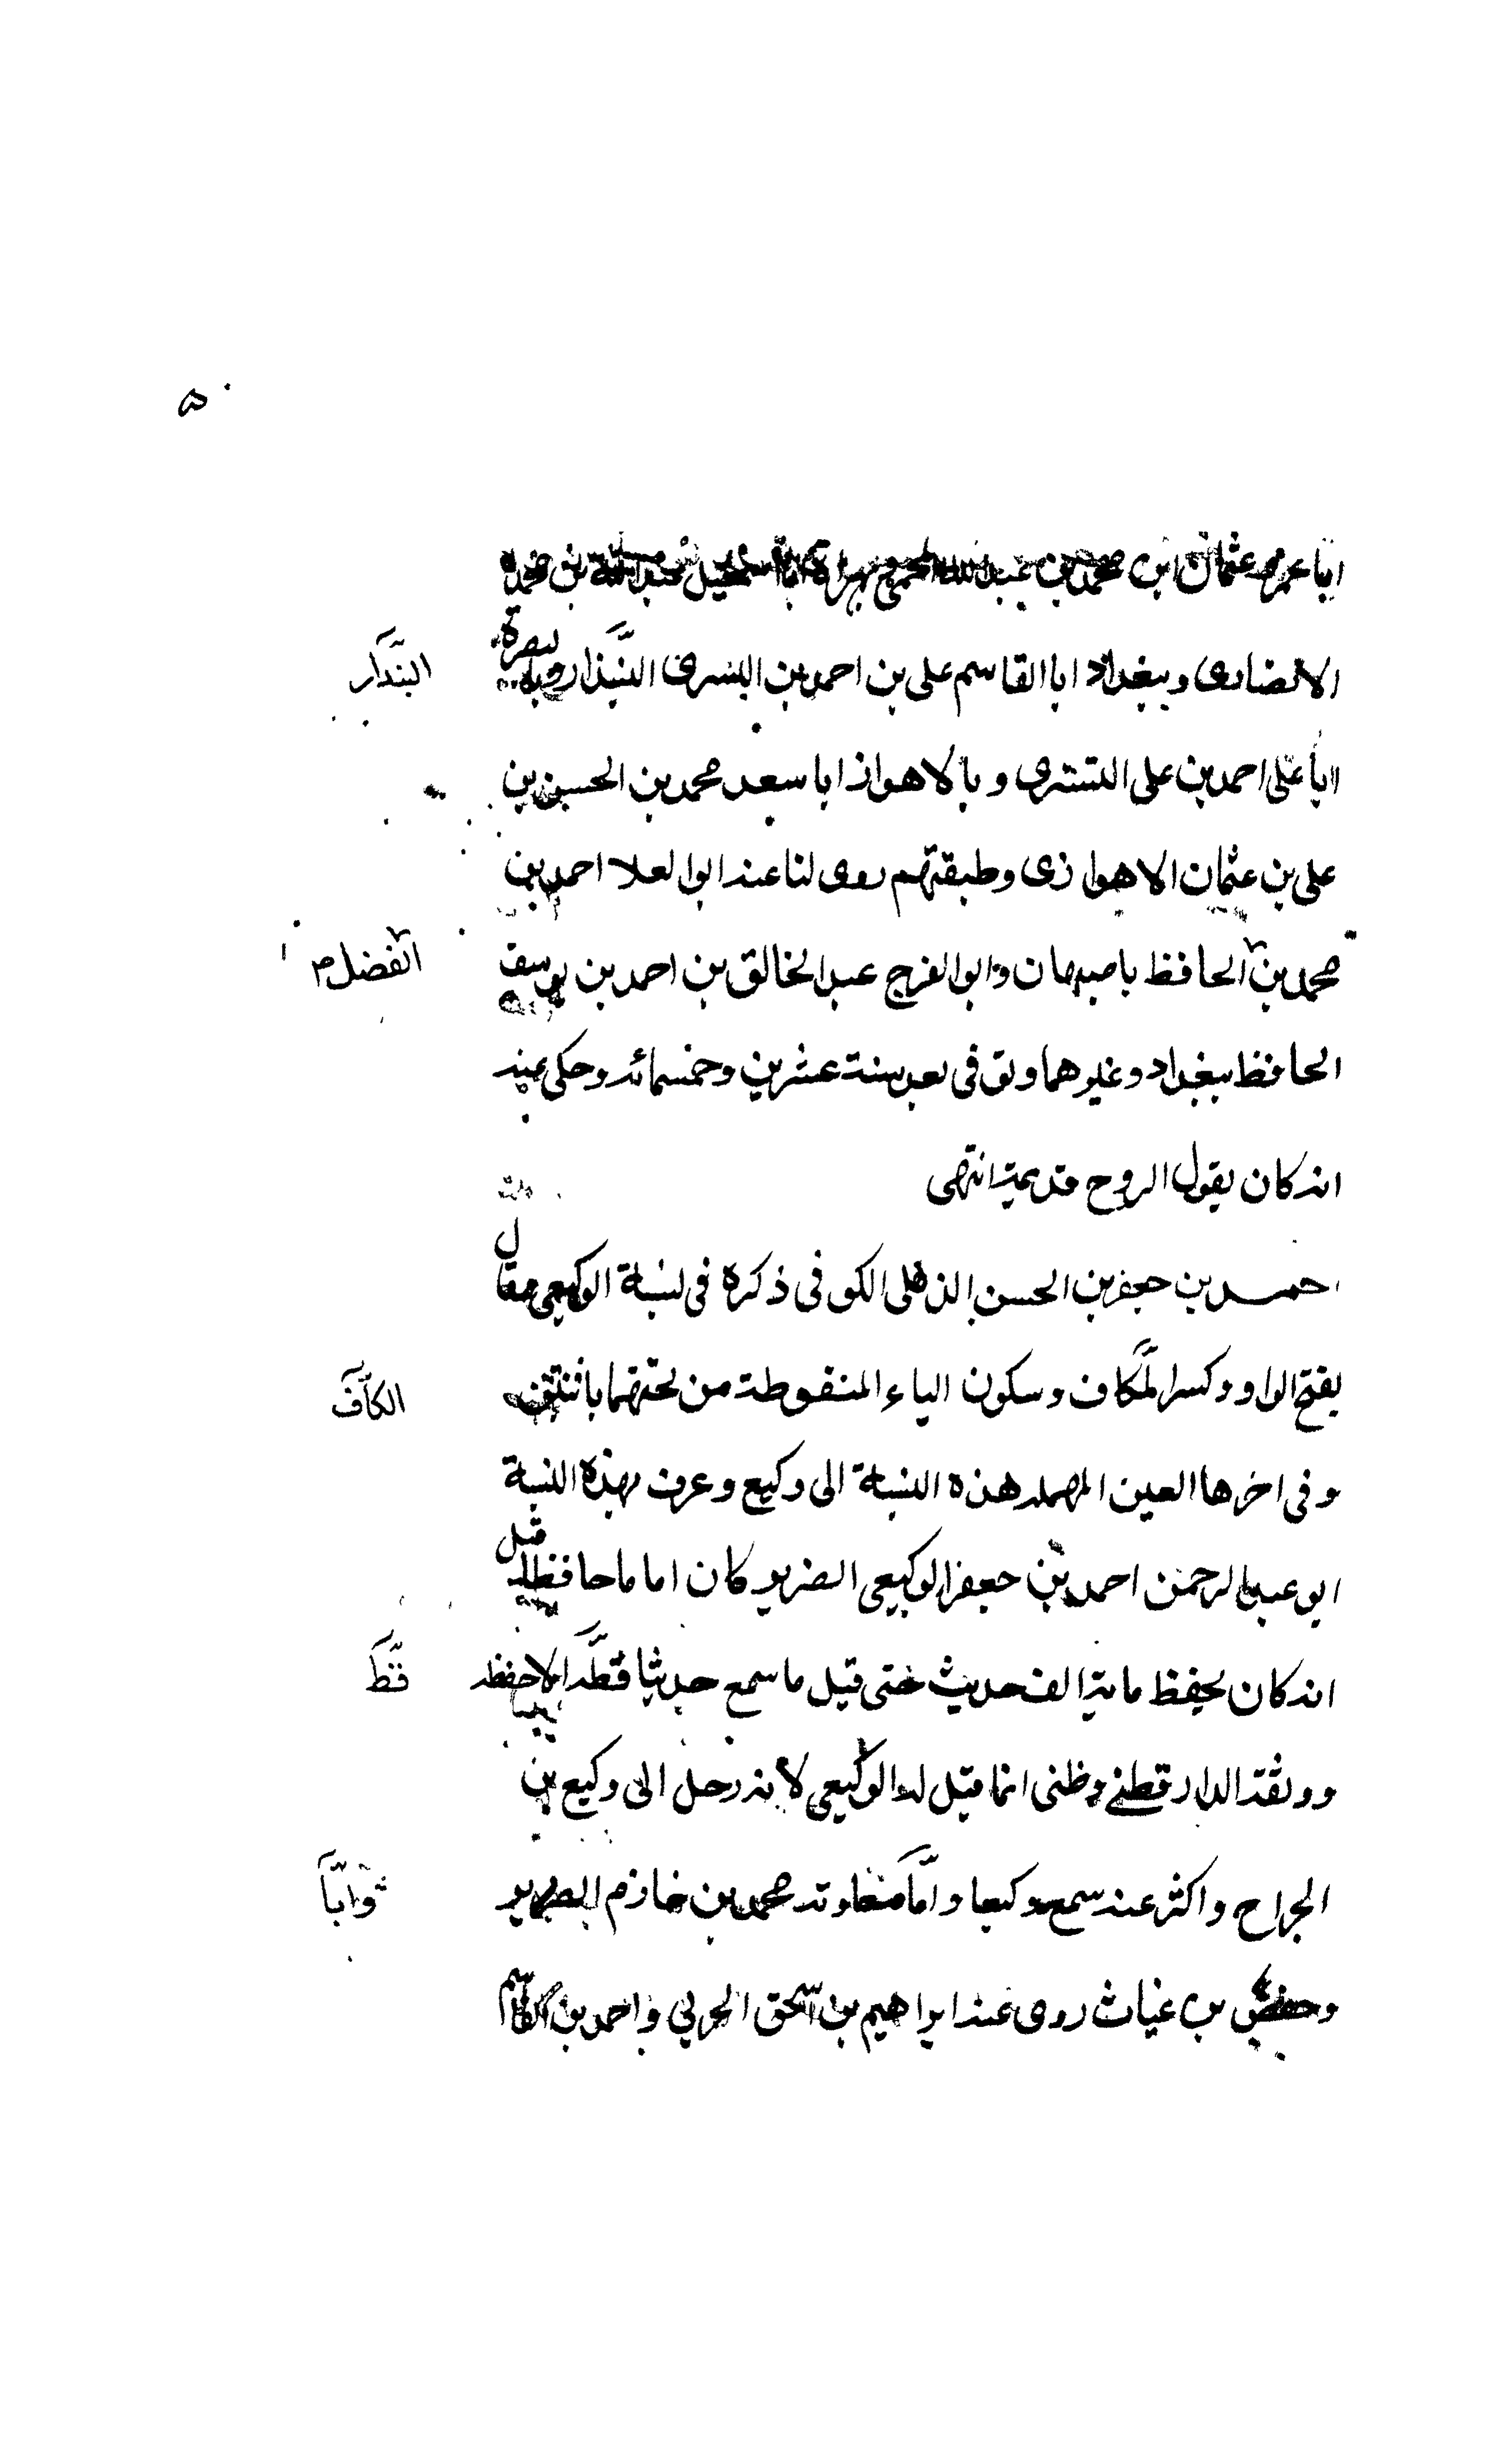 ٥٠
ابا عمرو عثمان ابن محمد بن عبد الله المحمي وبهراة ابا اسمعيل عبد الله بن محمد
الانصارى وببغداد ابا القاسم على بن احمد بن البسرى البندار وبالبصرة
البندار
ابا على احمد بن على التسترى وبالاهواز ابا سعد محمد بن الحسين بن
على بن عثمان الاهوازى وطبقتهم روى لنا عنه ابو العلا احمد بن
محمد بن الحافظ باصبهان وابو الفرج عبد الخالق بن احمد بن يوسف
الفضل م
الحافظ ببغداد وغيرهما وتوفى بعد سنة عشرين وخمسمائه وحكى عنه
انه كان يقول الروح قديمة انتهى
احمد بن جعفر بن الحسن الذهلى الكوفى ذكره فى نسبة الوكيعى وقال
بفتح الواو وكسر الكاف وسكون الياء المنقوطة من تحتهما باثنتين
الكاف
وفى اخرها العين المهمله هذه النسبة الى وكيع وعرف بهذه النسبة
ابو عبد الرحمن احمد بن جعفر الوكيعى الضرير كان اماما حافظا قيل
انه كان يحفظ مائة الف حديث حتى قيل ما سمع حديثا قط الا حفظه
قط
ووثقه الدارقطنے وظنى انما قيل له الوكيعى لانه رحل الى وكيع بن
الجراح واكثر عنه سمع وكيعا وابا معاويه محمد بن خازم الضرير
وابا
وحفص بن غياث روى عنه ابراهيم بن اسحق الحربي واحمد بن القاسم